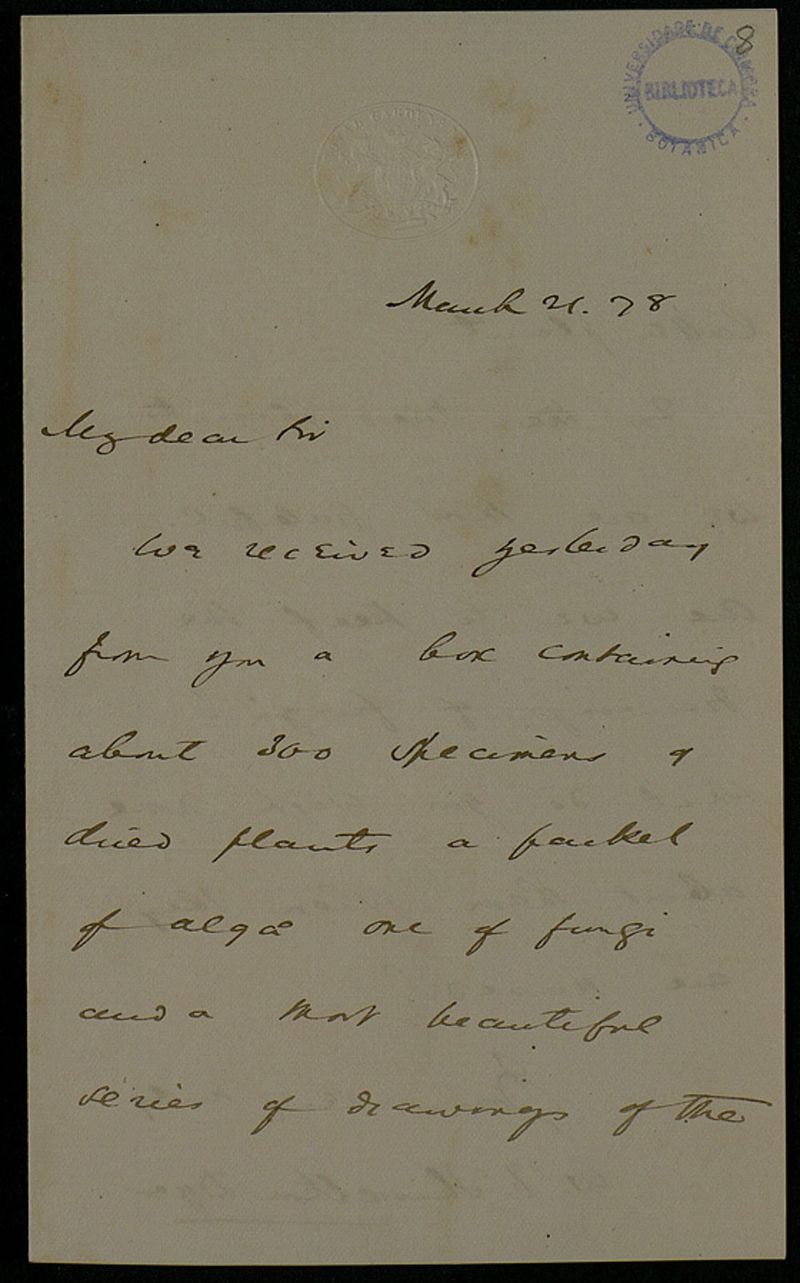 8
UNIVERSIDADE DE COIMBRA
BIBLIOTECA
BOTANICA
March 21. 78
My dear Sir
We received yesterday
from you a box containing
about 300 specimens of
dried plants a packet
of algæ one of fungi
and a most beautiful
series of drawings of the